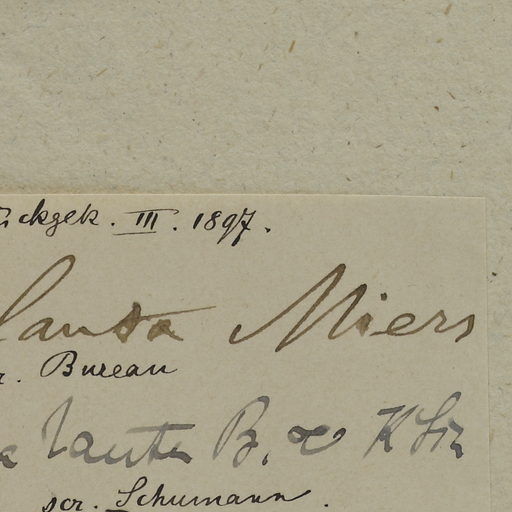 ückgek. III. 1897.
lauta Miers
r. Bureau
a lauta B. & K Sch
scr. Schumann.